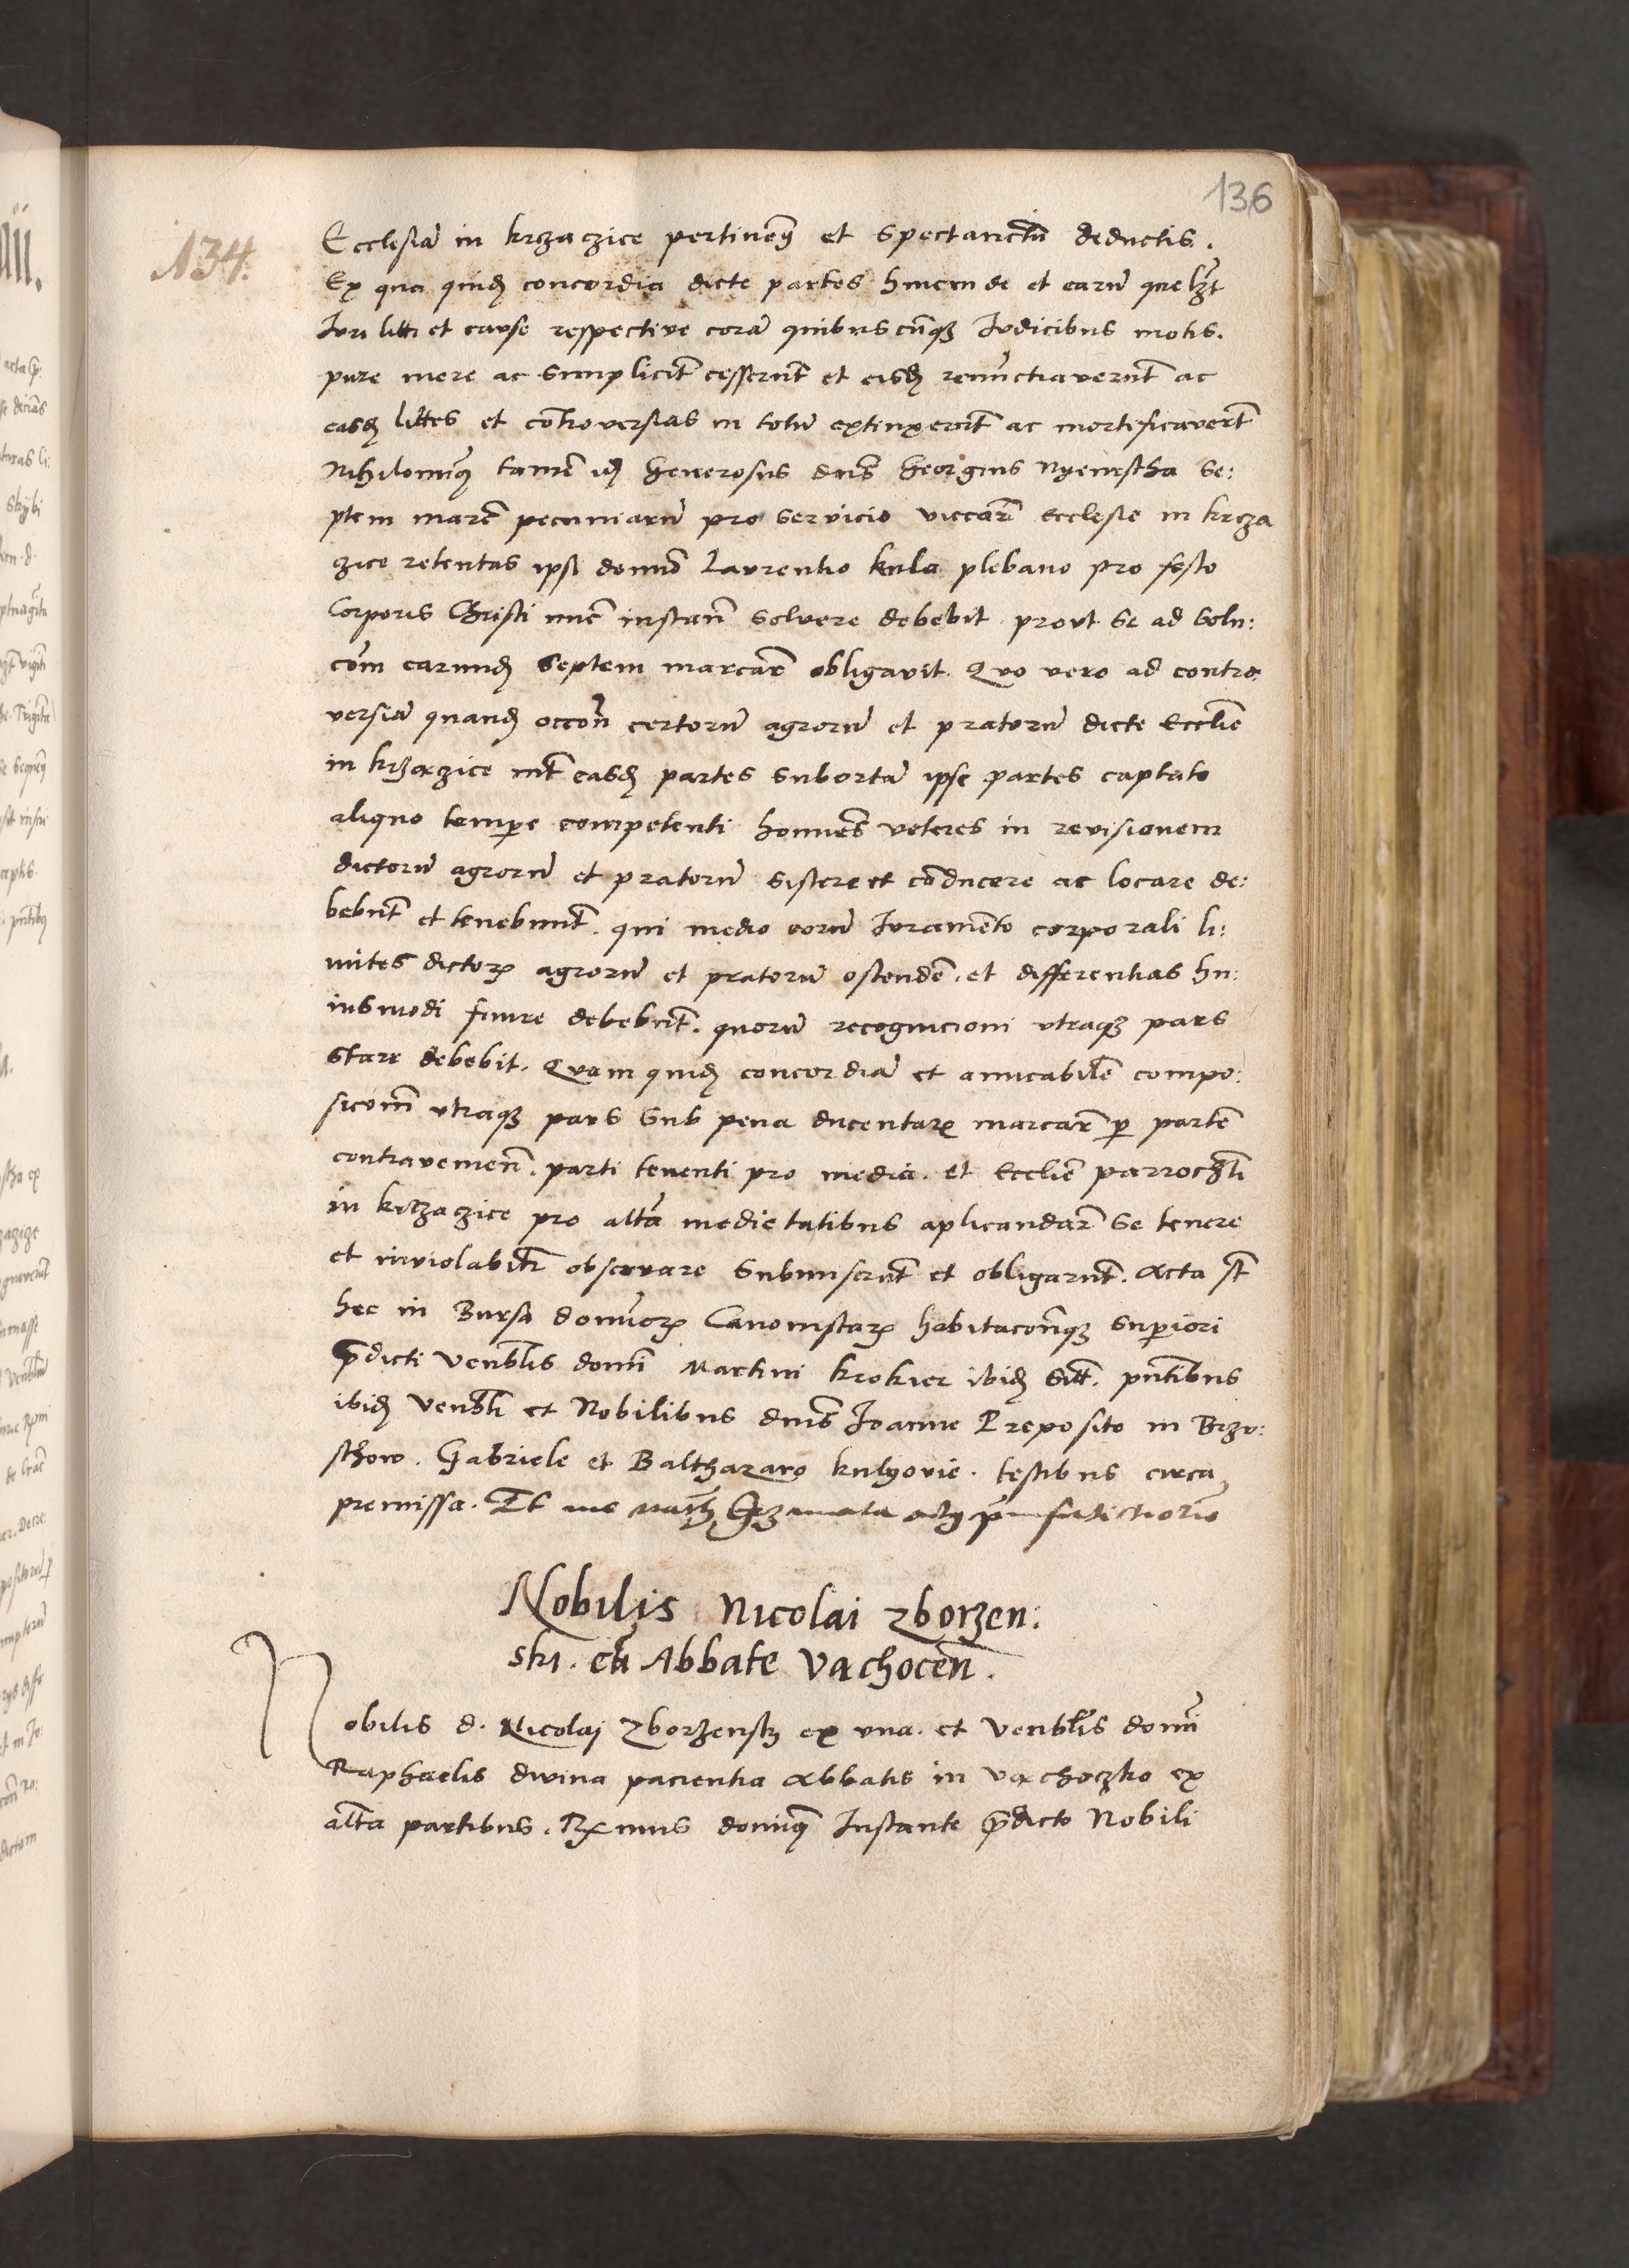 136
134.
Ecclesiā in krzaczice pertinen̄ et spectanctiū deductis.
Ex qua quidē concordia dicte partes hincinde et earū quelȝt
Juri liti et cause respective corā quibuscūqȝ Judicibus motis.
pure mere ac simplicit̄ cesserūt et eisdē renūctiaverūt ac
easdē littes et cōtroversias in totū extinxerūt ac mortificaverūt
Nihilominꝰ tamē idē Generosus dnūs Georgius Nyemstha se:
ptem marē pecuniarū pro servicio viccarē Ecclesie in krzа
czice retentas ipsi domīo Laurentio kula plebano pro festo
Corporis Christi nūc instan̄ solvere debebit prout se ad solu:
cōm earundē septem marcarē obligavit. Quo vero ad contro:
versiā quandē occōn̄ certorū agrorū et pratorū dicte Ecclīe
in krzaczice int̄ easdē partes subortā ipse partes captato
aliquo tempe competenti homīes veteres in revisionem
dictorū agrorū et pratorū sistere et cōducere ac locare de:
bebūt et tenebunt̄. qui medio eorū Juramēto corporali li:
mites dictorꝝ agrorū et pratorū ostendē. et differentias hu:
iusmodi finire debebūt. quorū recognicioni utraqȝ pars
stare debebit. Quam quidē concordiā et amicabilē compo:
sicōm̄ utraqȝ pars sub pena ducentarꝝ marcarē ꝑ partē
contravenien̄. parti tenenti pro media. et Ecclīe parrochlī
in krzaczice pro altā medietatibus aplicandarē se tenere
et inviolabilr̄ observare submiserūt et obligarūt. Acta sūt
hec in Bursa domīorꝝ Canonistarꝝ habitacōnqȝ superiori
p̄dicti Venblīs domī Martini krokier ibidē sit̄. pn̄tibus
ibidē Venblī et Nobilibus dnīs Joanne Preposito in Brzo:
schow. Gabriele et Balthazaro kulyovie. testibus circa
premissa. Et me
Nobilis Nicolai Zborzen:
ski. cū Abbate Vachocen̄.
Nobilis d. Nicolaj Zborzensky ex una. et Venblīs domī
Raphaelis divina pacientia Abbatis in Vachoczko ex
altā partibus. Rx̄mus domiqȝ Instante p̄dicto Nobili